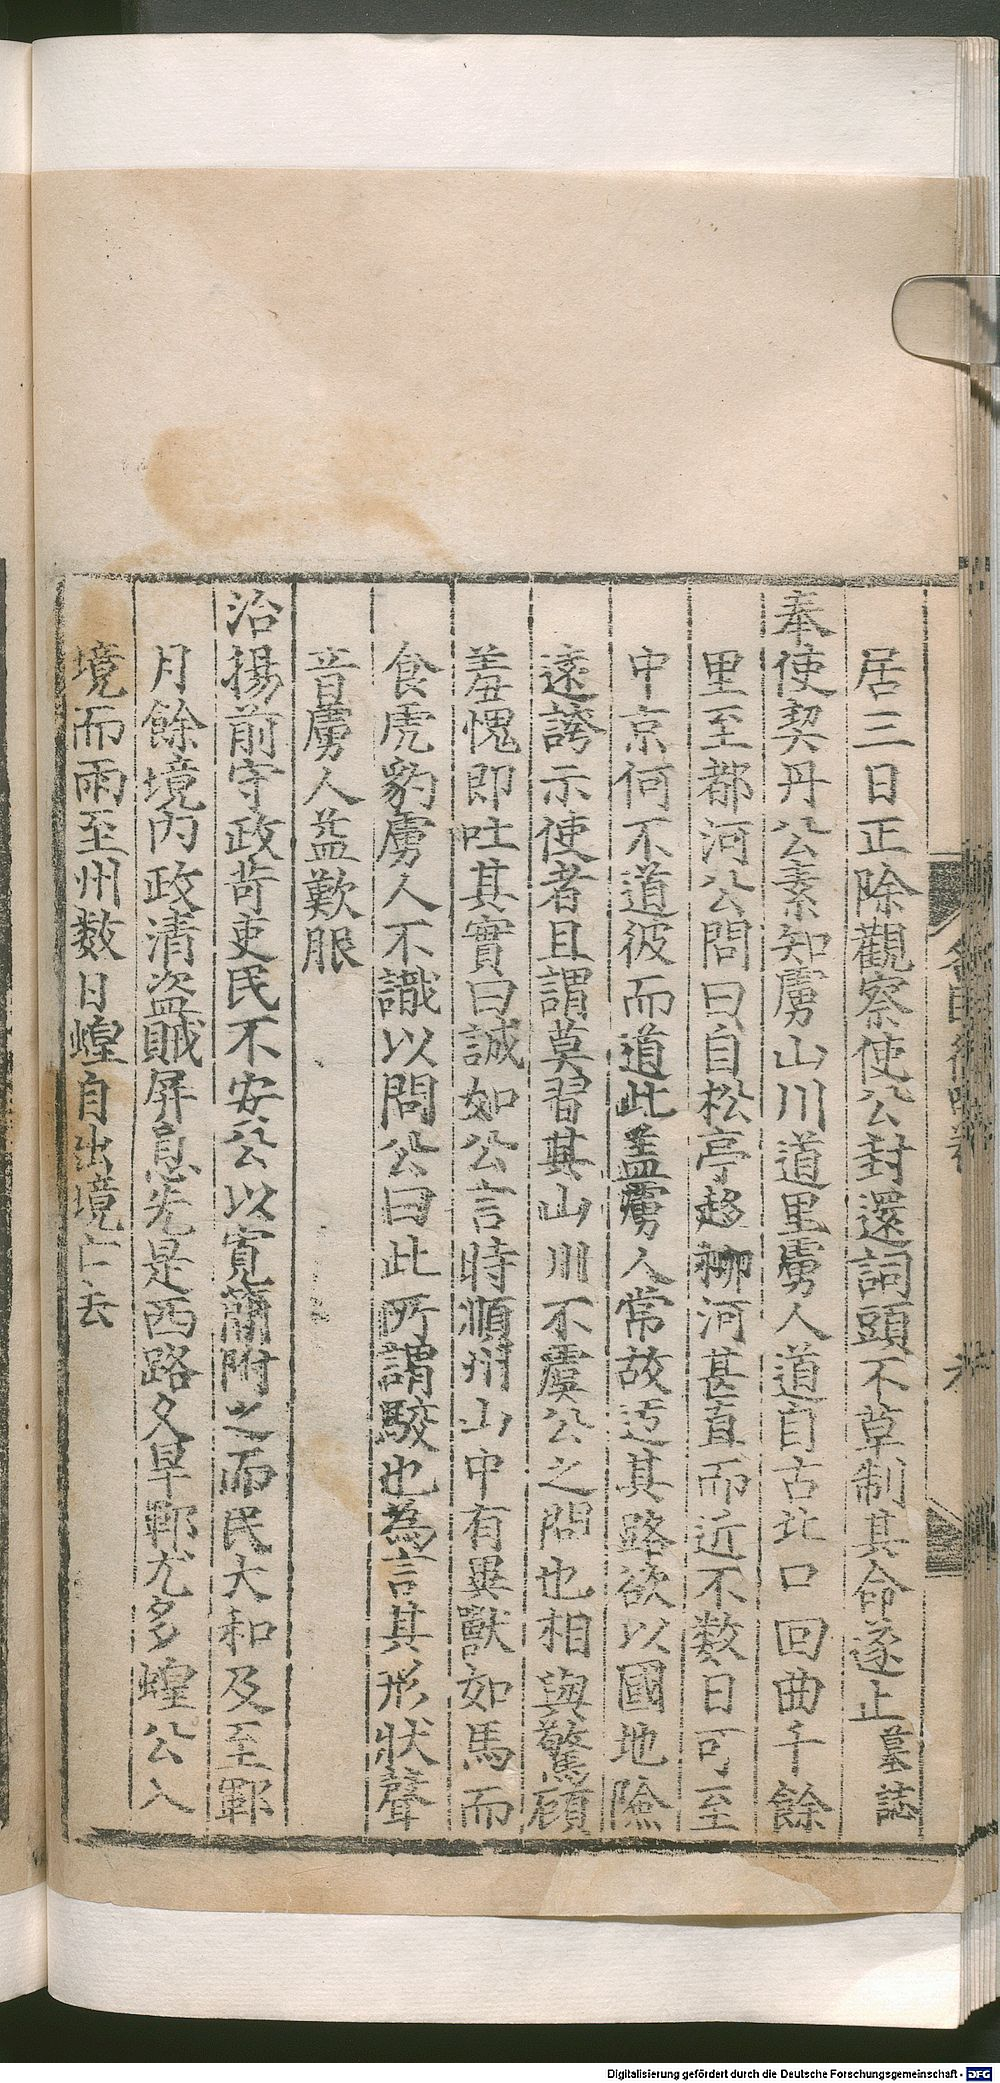 居三日正除觀察使公封還詞頭不草制其命遂止墓誌
奉使契丹公素知虜山川道里虜人道自古北口回曲千餘
里至都河公問曰自松亭趍柳河甚直而近不数日可至
中京何不道彼而道此盖虜人常故迃其路欲以國地險
遠誇示使者且謂莫習其山川不虞公之問也相與驚顧
羞愧即吐其實曰誠如公言時順州山中有異獸如馬而
食虎豹虜人不識以問公曰此所謂駮也為言其形狀聲
音虜人益歎服
治揚前守政苛吏民不安公以寬簡附之而民大和及至鄆
月餘境内政清盗賊屏息先是西路久旱鄆尤多蝗公入
境而雨至州数日蝗自出境亡去
Digitalisierung gefördert durch die Deutsche Forschungsgemeinschaft - DFG